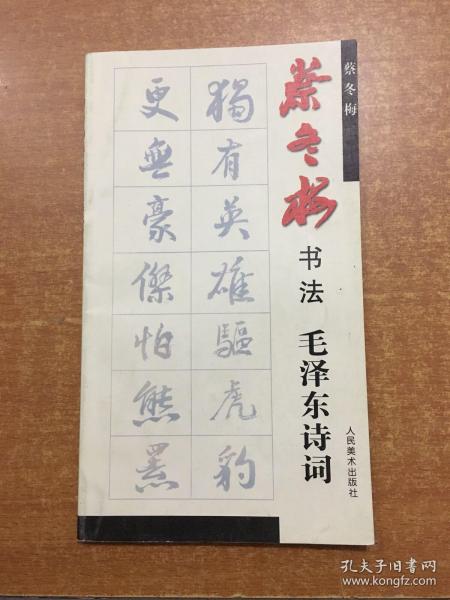 蔡冬梅
蔡冬梅
书法 毛泽东诗词
人民美术出版社
獨有英雄驅虎豹
更無豪傑怕熊羆
孔夫子旧书网
www.kongfz.com